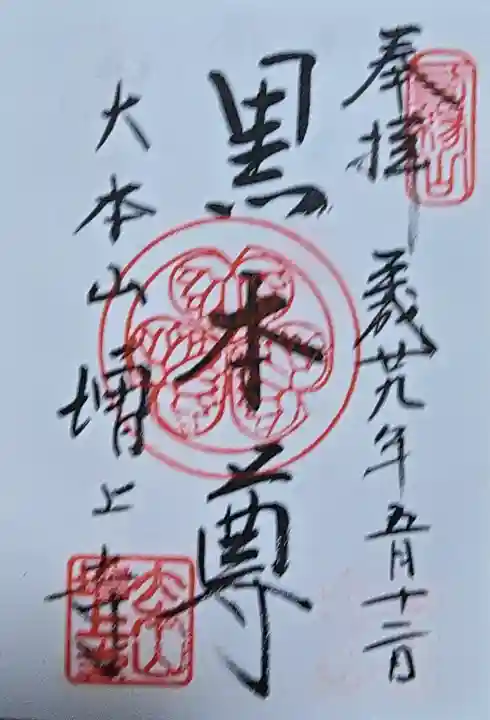 奉拝
平成廿九年五月十二日
黒本尊
大本山増上寺